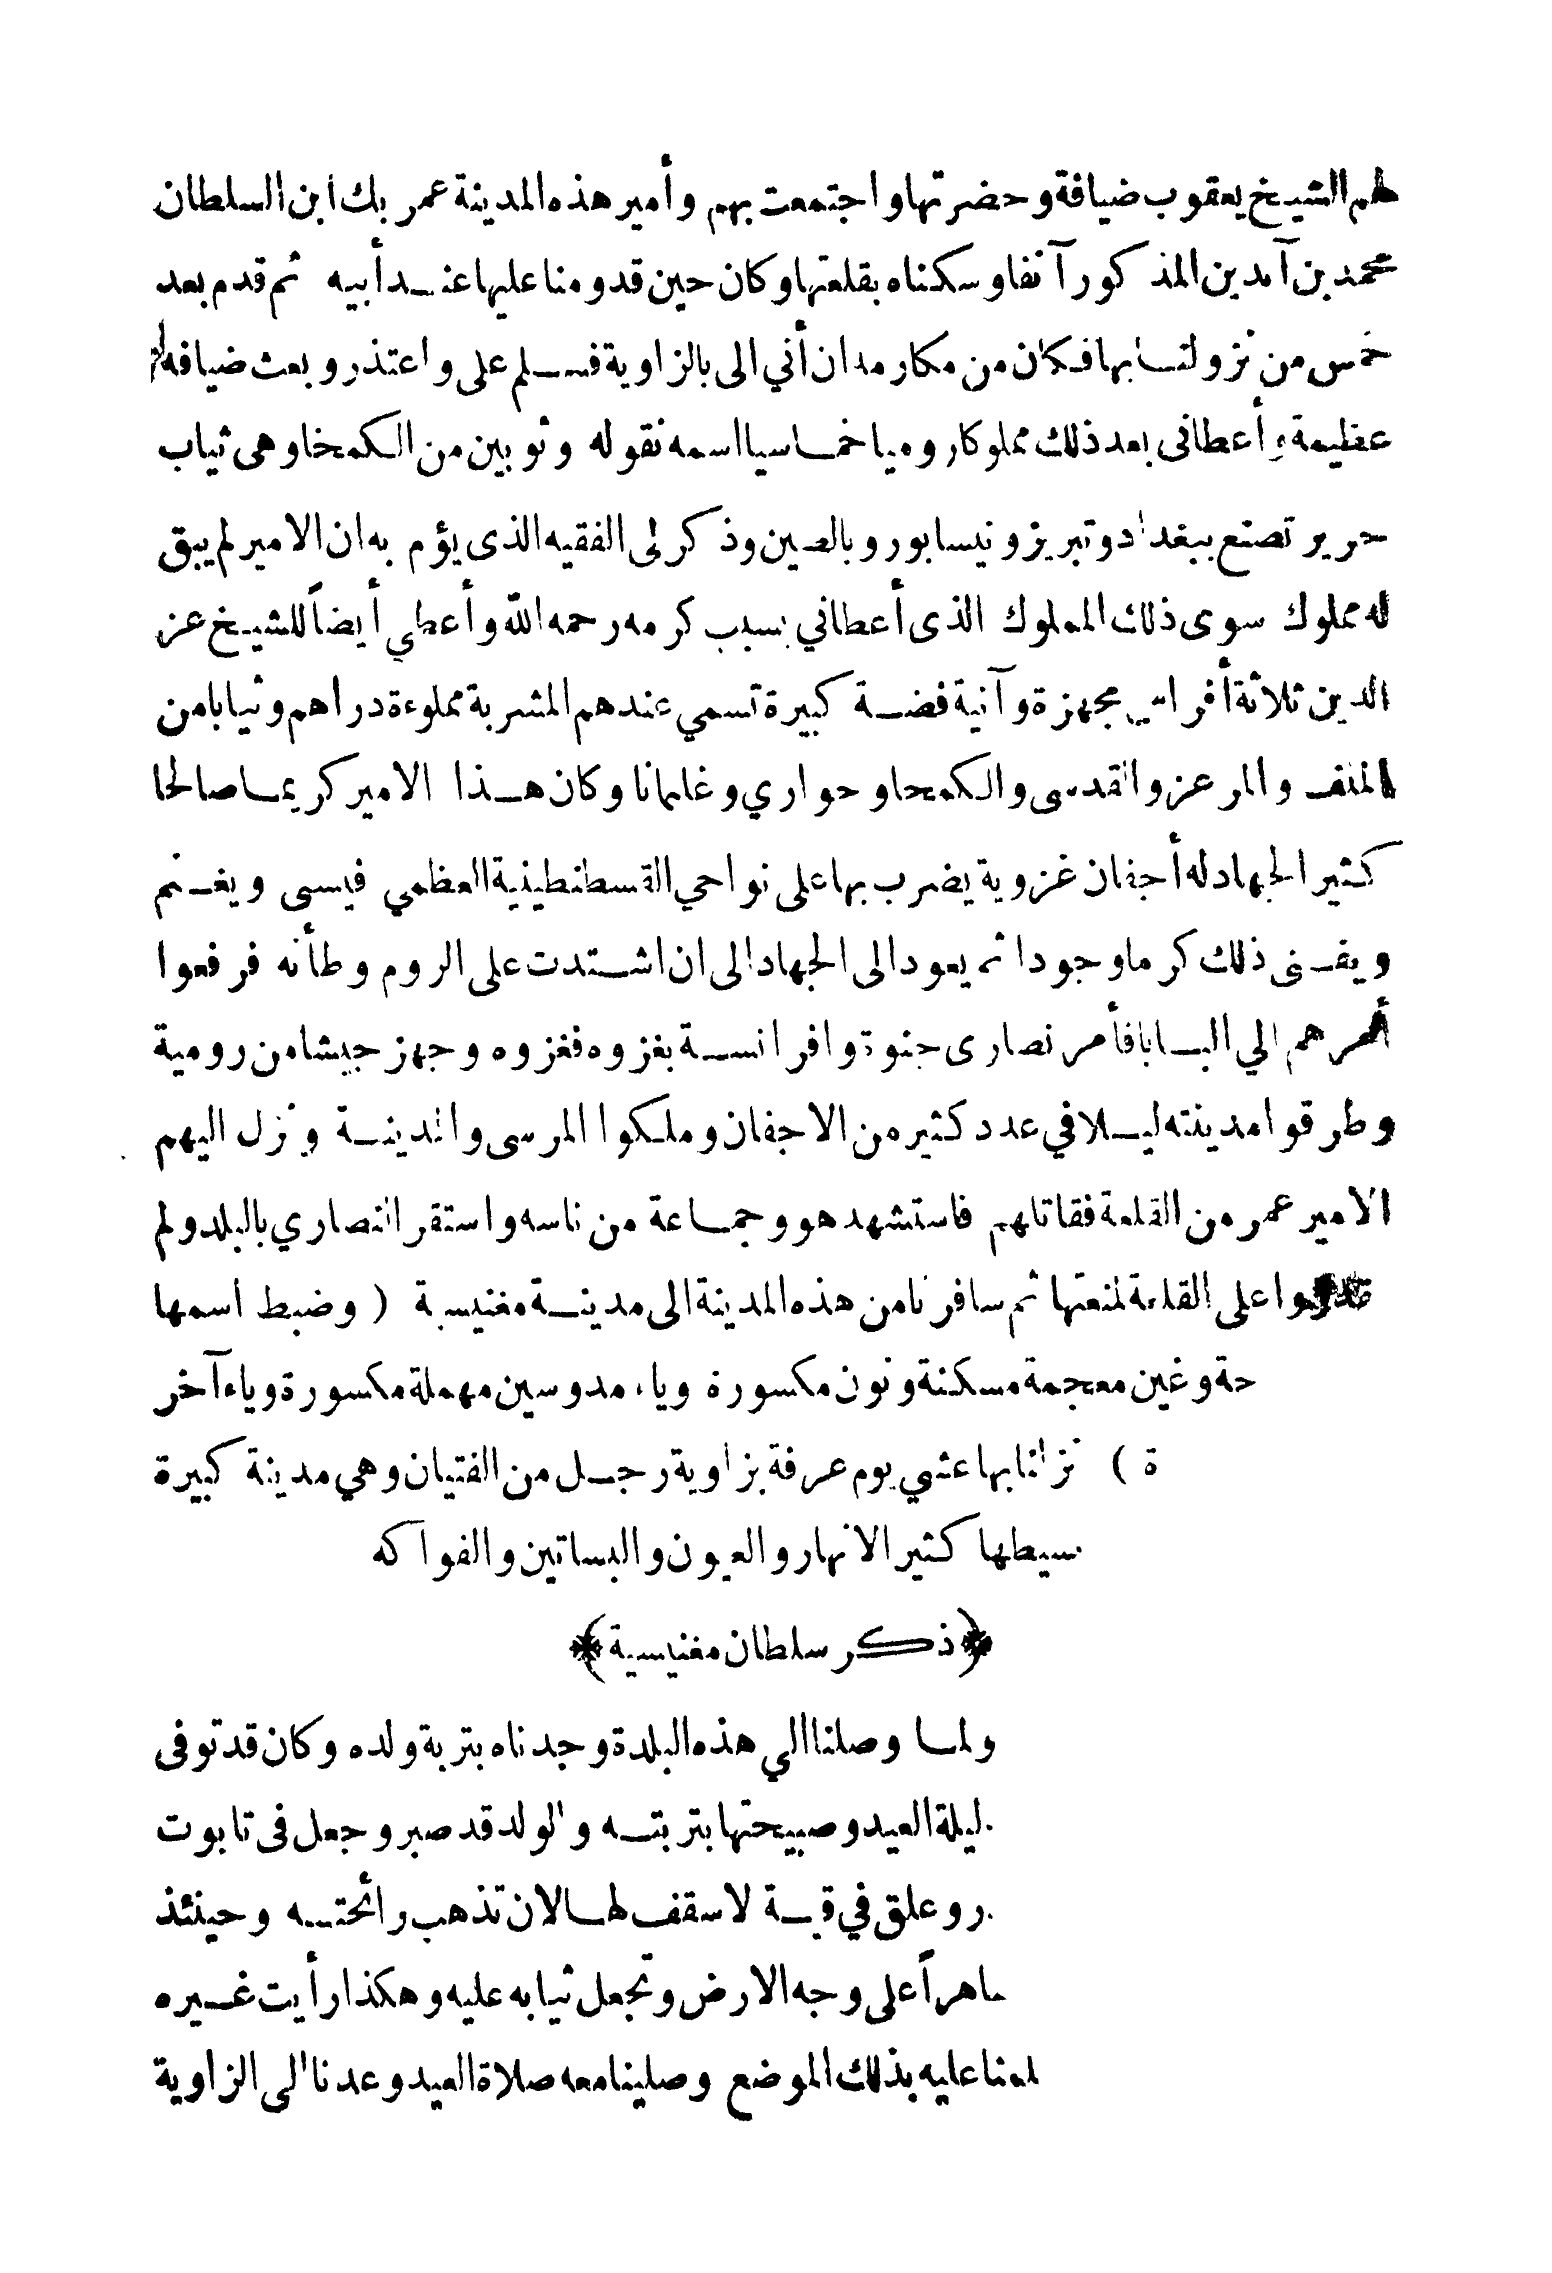 لهم الشيخ يعقوب ضيافة وحضرتها واجتمعت بهم وأمير هذه المدينة عمر بك ابن السلطان
محمد بن آيدين المذكور آنفا وسكناه بقلعتها وكان حين قدومنا عليها عند أبيه ثم قدم بعد
خمس من نزولنا بها فكان من مكارمه ان أتي الى بالزاوية فسلم على واعتذر وبعث ضيافة
عظيمة وأعطانى بعد ذلك مملوكا روميا خماسيا اسمه نقوله وثوبين من الكمخا وهى ثياب
حرير تصنع ببغداد وتبريز ونيسابور وبالصين وذكر لى الفقيه الذى يؤم به ان الامير لم يبق
له مملوك سوى ذلك المملوك الذى أعطاني بسبب كرمه رحمه الله وأعطي أيضاً للشيخ عز
الدين ثلاثة أفراس مجهزة وآنية فضة كبيرة تسمي عندهم المشربة مملوءة دراهم وثيابا من
الملف والمرعز والقدسى والكمخا وجواري وغلمانا وكان هذا الامير كريما صالحا
كثير الجهاد له أجفان غزوية يضرب بها على نواحي القسطنطينية العظمي فيسبى ويغنم
ويفنى ذلك كرما وجودا ثم يعود الى الجهاد الى ان اشتدت على الروم وطأته فرفعوا
أمرهم الي البابا فأمر نصارى جنوة وافرانسة بغزوه فغزوه وجهز جيشا من رومية
وطرقوا مدينته ليلا في عدد كثير من الاجفان وملكوا المرسى والمدينة ونزل اليهم
الامير عمر من القلعة فقاتلهم فاستشهد هو وجماعة من ناسه واستقر النصاري بالبلد ولم
يقدروا على القلعة لمنعتها ثم سافرنا من هذه المدينة الى مدينة مغنيسية ( وضبط اسمها
حة وغين معجمة مسكنة ونون مكسورة وياء مد وسين مهملة مكسورة وياء آخر
ة ) نزلنا بها عشي يوم عرفة بزاوية رجل من الفتيان وهي مدينة كبيرة
سيطها كثير الانهار والعيون والبساتين والفواكه
﴿ ذكر سلطان مغنيسية ﴾
ولما وصلنا الي هذه البلدة وجدناه بتربة ولده وكان قد توفى
ليلة العيد وصبيحتها بتربته والولد قد صبر وجعل فى تابوت
ر وعلق في قبة لا سقف لها لان تذهب رائحته وحينئذ
اهراً على وجه الارض وتجعل ثيابه عليه وهكذا رأيت غيره
لمنا عليه بذلك الموضع وصلينا معه صلاة العيد وعدنا الى الزاوية